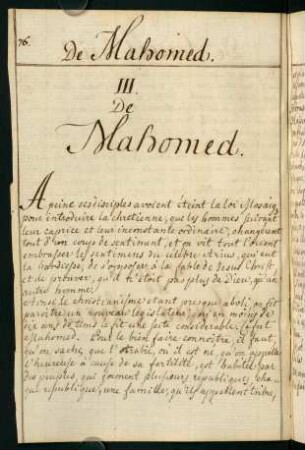 76.
De Mahomed.
III.
De
Mahomed.
A peine ses disciples avoient éteint la loi Mosaiq
pour introduire la chretienne, que les hommes suivant
leur caprice et leur inconstante ordinaire, changerent
tout d'un coup de sentiment, et on vit tout l'Orient
embrasser les sentimens du celebre Arius, qui eut
la hardiesse, de s'opposer à la fable de Jesus Christ
et de prouver, qu'il n'étoit pas plus de Dieu, qu'un
autre homme
ainsi le christianisme etant presque aboli, on fit
paroitre un nouveau legislateur, qui en moins de
dix ans de tems se fit une secte considerable, ce fut
Mahomed. Pour le bien faire connoitre, il faut,
qu'on sache que l'Arabie, où il est né, qu'on appelle
l'heureuse à cause de sa fertilité, est habitée par
des peuples, qui forment plusieurs republiques, cha-
que republique, une famille, qu'ils appellent tribu,